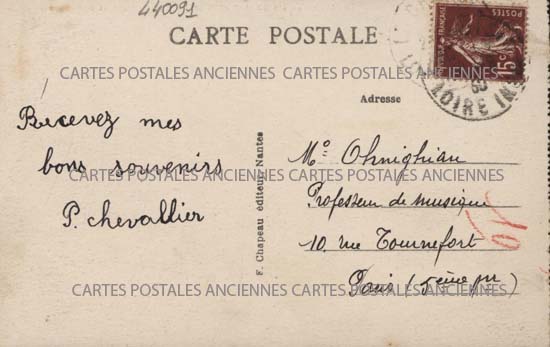 440091
CARTE POSTALE
POSTES
15c
LOIRE INF
CARTES POSTALES ANCIENNES CARTES POSTALES ANCIENNES
Adresse
Recevez mes
bons souvenirs
P. Chevallier
F. Chapeau éditeur, Nantes
Mr Ohnighian
CARTES POSTALES ANCIENNES CARTES POSTALES ANCIENNES
Professeur de musique
10. rue Tournefort
Paris (5ème
CARTES POSTALES ANCIENNES CARTES POSTALES ANCIENNES